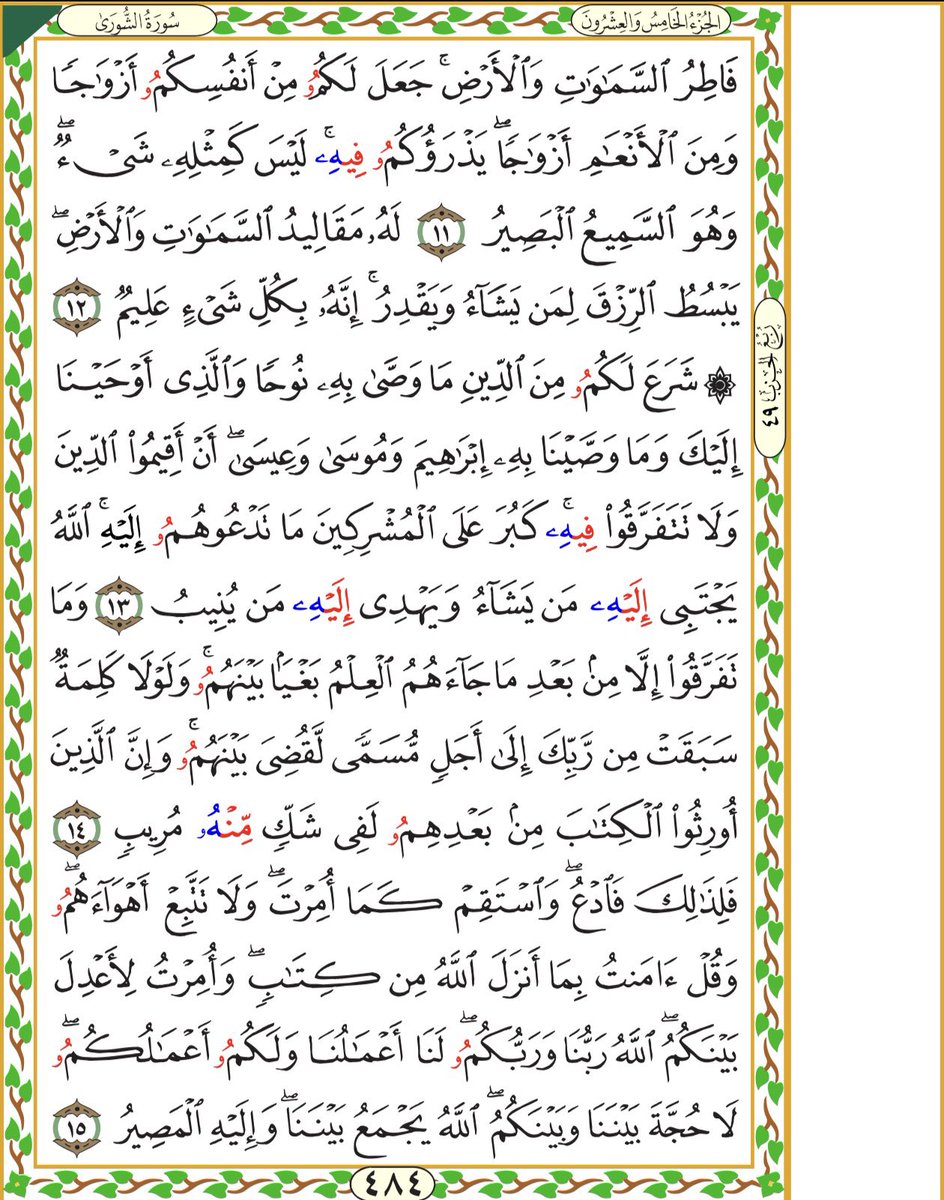 سُورَةُ الشُّورَىٰ
الجُزْءُ الخَامِسُ وَالعِشْرُونَ
فَاطِرُ ٱلسَّمَٰوَٰتِ وَٱلْأَرْضِ ۚ جَعَلَ لَكُمُۥ مِنْ أَنفُسِكُمُۥ أَزْوَٰجًا
وَمِنَ ٱلْأَنْعَٰمِ أَزْوَٰجًا ۖ يَذْرَؤُكُمُۥ فِيهِۦ ۚ لَيْسَ كَمِثْلِهِۦ شَىْءٌ ۖ
وَهُوَ ٱلسَّمِيعُ ٱلْبَصِيرُ ١١ لَهُۥ مَقَالِيدُ ٱلسَّمَٰوَٰتِ وَٱلْأَرْضِ ۖ
يَبْسُطُ ٱلرِّزْقَ لِمَن يَشَآءُ وَيَقْدِرُ ۚ إِنَّهُۥ بِكُلِّ شَىْءٍ عَلِيمٌ ١٢
۞ شَرَعَ لَكُمُۥ مِنَ ٱلدِّينِ مَا وَصَّىٰ بِهِۦ نُوحًا وَٱلَّذِى أَوْحَيْنَا
إِلَيْكَ وَمَا وَصَّيْنَا بِهِۦ إِبْرَٰهِيمَ وَمُوسَىٰ وَعِيسَىٰ ۖ أَنْ أَقِيمُوا۟ ٱلدِّينَ
وَلَا تَتَفَرَّقُوا۟ فِيهِۦ ۚ كَبُرَ عَلَى ٱلْمُشْرِكِينَ مَا تَدْعُوهُمُۥ إِلَيْهِ ۚ ٱللَّهُ
يَجْتَبِى إِلَيْهِۦ مَن يَشَآءُ وَيَهْدِى إِلَيْهِۦ مَن يُنِيبُ ١٣ وَمَا
تَفَرَّقُوا۟ إِلَّا مِنۢ بَعْدِ مَا جَآءَهُمُ ٱلْعِلْمُ بَغْيًۢا بَيْنَهُمُۥ ۚ وَلَوْلَا كَلِمَةٌ
سَبَقَتْ مِن رَّبِّكَ إِلَىٰ أَجَلٍ مُّسَمًّى لَّقُضِىَ بَيْنَهُمُۥ ۚ وَإِنَّ ٱلَّذِينَ
أُورِثُوا۟ ٱلْكِتَٰبَ مِنۢ بَعْدِهِمُۥ لَفِى شَكٍّ مِّنْهُۥ مُرِيبٍ ١٤
فَلِذَٰلِكَ فَٱدْعُ ۖ وَٱسْتَقِمْ كَمَآ أُمِرْتَ ۖ وَلَا تَتَّبِعْ أَهْوَآءَهُمُۥ ۖ
وَقُلْ ءَامَنتُ بِمَا أَنزَلَ ٱللَّهُ مِن كِتَٰبٍ ۖ وَأُمِرْتُ لِأَعْدِلَ
بَيْنَكُمُ ۖ ٱللَّهُ رَبُّنَا وَرَبُّكُمُۥ ۖ لَنَا أَعْمَٰلُنَا وَلَكُمُۥ أَعْمَٰلُكُمُۥ ۖ
لَا حُجَّةَ بَيْنَنَا وَبَيْنَكُمُ ۖ ٱللَّهُ يَجْمَعُ بَيْنَنَا ۖ وَإِلَيْهِ ٱلْمَصِيرُ ١٥
رُبْعُ الحِزْبِ ٤٩
٤٨٤